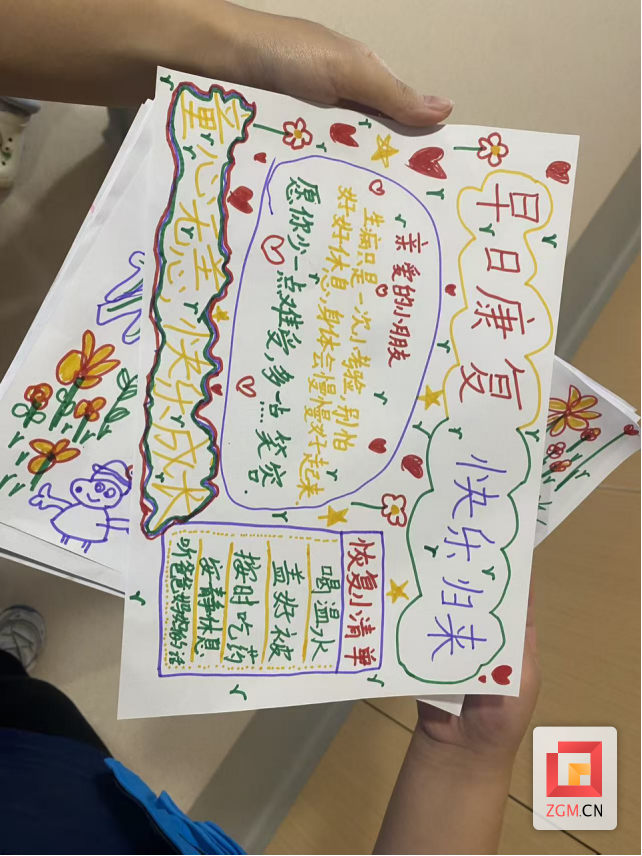 早日康复
快乐归来
亲爱的小朋友
生病只是一次小考验,别怕
好好休息,身体会慢慢好起来
愿你少一点难受,多一点笑容.
恢复小清单
喝温水
盖好被
按时吃药
安静休息
听爸爸妈妈的话
童心无恙 快乐成长
ZGM.CN